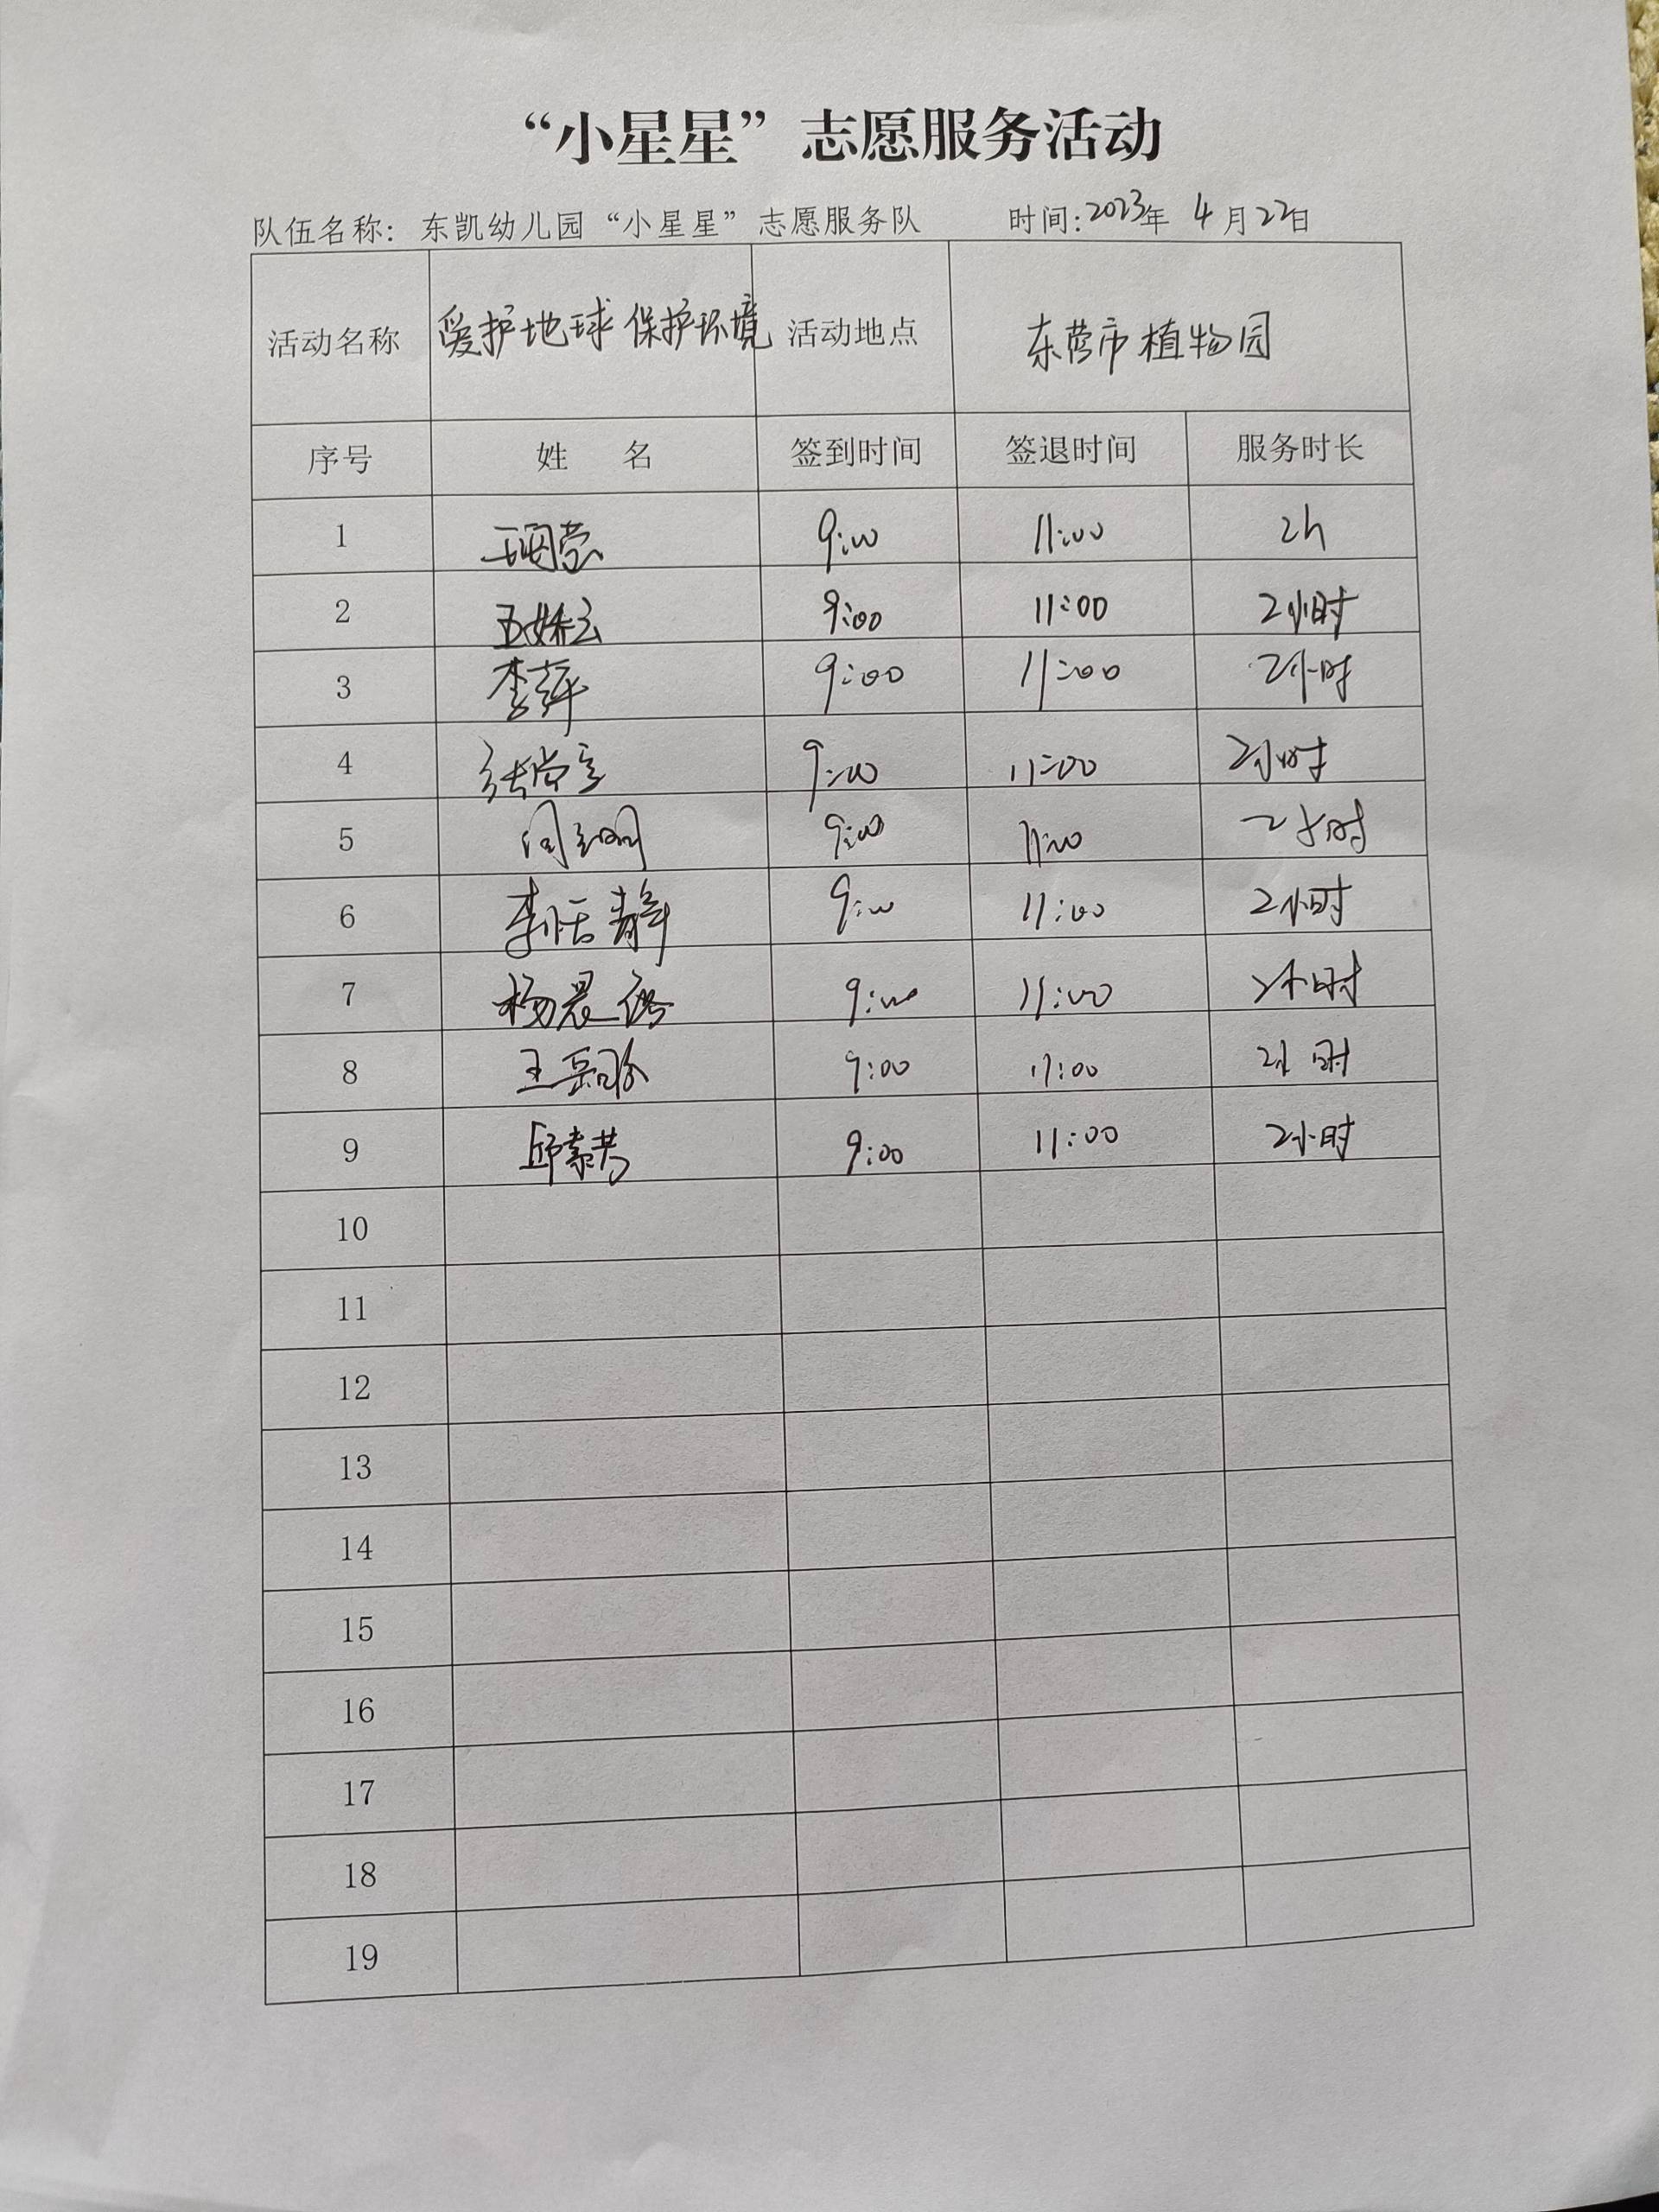 “小星星”志愿服务活动
队伍名称: 东凯幼儿园“小星星”志愿服务队 时间:2023年 4月22日
活动名称 爱护地球 保护环境 活动地点 东营市植物园
序号 姓 名 签到时间 签退时间 服务时长
1 9:00 11:00 2h
2 9:00 11:00 2小时
3 李萍 9:00 11:00 2小时
4 9:00 11:00 2小时
5 9:00 11:00 2小时
6 李恬静 9:00 11:00 2小时
7 杨晨 9:00 11:00 2小时
8 王岳 9:00 11:00 2小时
9 邱素 9:00 11:00 2小时
10
11
12
13
14
15
16
17
18
19